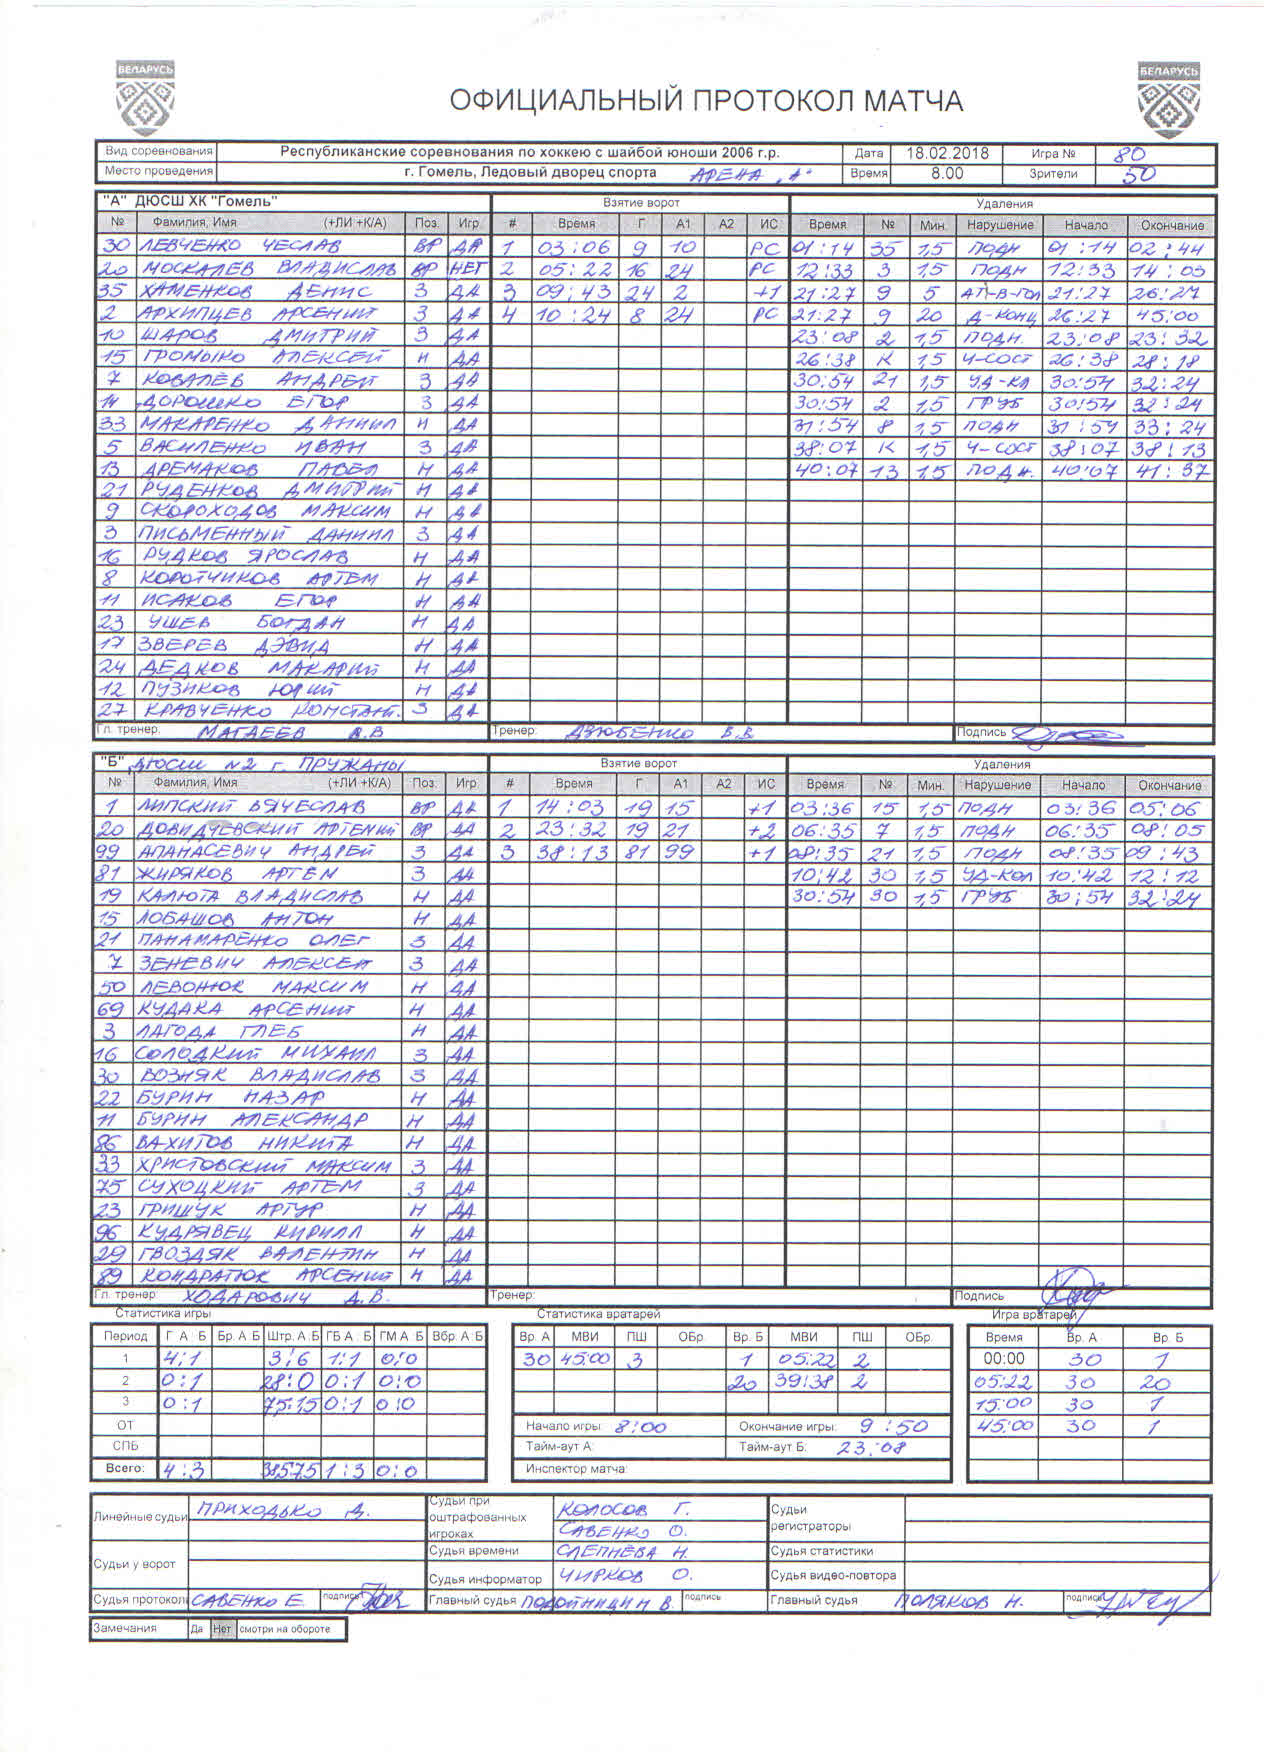 БЕЛАРУСЬ БЕЛАРУСЬ
ОФИЦИАЛЬНЫЙ ПРОТОКОЛ МАТЧА
Вид соревнования Республиканские соревнования по хоккею с шайбой юноши 2006 г.р. Дата 18.02.2018 Игра № 80
Место проведения г. Гомель, Ледовый дворец спорта АРЕНА "А" Время 8.00 Зрители 50
"А" ДЮСШ ХК "Гомель" Взятие ворот Удаления
№ Фамилия, Имя (+ЛИ +К/А) Поз. Игр # Время Г А1 А2 ИС Время № Мин. Нарушение Начало Окончание
30 ЛЕВЧЕНКО ЧЕСЛАВ ВР ДА 1 03:06 9 10 РС 01:14 35 1,5 ПОДН 01:14 02:44
20 МОСКАЛЕВ ВЛАДИСЛАВ ВР НЕТ 2 05:22 16 24 РС 12:33 3 1,5 ПОДН 12:33 14:03
35 ХАМЕНКОВ ДЕНИС З ДА 3 09:43 24 2 +1 21:27 9 5 АТ-В-ГОЛ 21:27 26:27
2 АРХИПЦЕВ АРСЕНИЙ З ДА 4 10:24 8 24 РС 21:27 9 20 Д-КОНЦ 26:27 45:00
10 ШАРОВ ДМИТРИЙ З ДА 23:08 2 1,5 ПОДН. 23:08 23:32
15 ГРОМЫКО АЛЕКСЕЙ Н ДА 26:38 К 1,5 Ч-СОСТ 26:38 28:18
7 КОВАЛЁВ АНДРЕЙ З ДА 30:54 21 1,5 УД-КЛ 30:54 32:24
14 ДОРОШКО ЕГОР З ДА 30:54 2 1,5 ГРУБ 30:54 32:24
33 МАКАРЕНКО ДАНИИЛ Н ДА 31:54 8 1,5 ПОДН 31:54 33:24
5 ВАСИЛЕНКО ИВАН З ДА 38:07 К 1,5 Ч-СОСТ 38:07 38:13
13 ДРЕМАКОВ ПАВЕЛ Н ДА 40:07 13 1,5 ПОДН. 40:07 41:37
21 РУДЕНКОВ ДМИТРИЙ Н ДА
9 СКОРОХОДОВ МАКСИМ Н ДА
3 ПИСЬМЕННЫЙ ДАНИИЛ З ДА
16 РУДКОВ ЯРОСЛАВ Н ДА
8 КОРОТЧИКОВ АРТЕМ Н ДА
11 ИСАКОВ ЕГОР Н ДА
23 УШЕВ БОГДАН Н ДА
17 ЗВЕРЕВ ДЭВИД Н ДА
24 ДЕДКОВ МАКАРИЙ Н ДА
12 ПУЗИКОВ ЮРИЙ Н ДА
27 КРАВЧЕНКО КОНСТАНТ. З ДА
Гл. тренер: МАТАЕЕВ А.В Тренер: ДЗЮБЕНКО В.В Подпись
"Б" ДЮСШ №2 г. ПРУЖАНЫ Взятие ворот Удаления
№ Фамилия, Имя (+ЛИ +К/А) Поз. Игр # Время Г А1 А2 ИС Время № Мин. Нарушение Начало Окончание
1 ЛИПСКИЙ ВЯЧЕСЛАВ ВР ДА 1 14:03 19 15 +1 03:36 15 1,5 ПОДН 03:36 05:06
20 ДОВИДЧЕВСКИЙ АРТЕМИЙ ВР ДА 2 23:32 19 21 +2 06:35 7 1,5 ПОДН 06:35 08:05
99 АПАНАСЕВИЧ АНДРЕЙ З ДА 3 38:13 81 99 +1 08:35 21 1,5 ПОДН 08:35 09:43
81 ЖИРЯКОВ АРТЕМ З ДА 10:42 30 1,5 УД-КОЛ 10:42 12:12
19 КАЛЮТА ВЛАДИСЛАВ Н ДА 30:54 30 1,5 ГРУБ 30:54 32:24
15 ЛОБАШОВ АНТОН Н ДА
21 ПАНАМАРЕНКО ОЛЕГ З ДА
7 ЗЕНЕВИЧ АЛЕКСЕЙ З ДА
50 ЛЕВОНЮК МАКСИМ Н ДА
69 КУДАКА АРСЕНИЙ Н ДА
3 ЛАГОДА ГЛЕБ Н ДА
16 СОЛОДКИЙ МИХАИЛ З ДА
30 ВОЗНЯК ВЛАДИСЛАВ З ДА
22 БУРИН НАЗАР Н ДА
11 БУРИН АЛЕКСАНДР Н ДА
86 ВАХИТОВ НИКИТА Н ДА
33 ХРИСТОВСКИЙ МАКСИМ З ДА
75 СУХОЦКИЙ АРТЕМ З ДА
23 ГРИШУК АРТУР Н ДА
96 КУДРЯВЕЦ КИРИЛЛ Н ДА
29 ГВОЗДЯК ВАЛЕНТИН Н ДА
89 КОНДРАТЮК АРСЕНИЙ Н ДА
Гл. тренер: ХОДАРОВИЧ Д.В. Тренер: Подпись
Статистика игры Статистика вратарей Игра вратарей
Период Г А Б Бр. А Б Штр. А Б ГБ А Б ГМ А Б Вбр. А Б Вр. А МВИ ПШ ОБр Вр. Б МВИ ПШ ОБр. Время Вр. А Вр. Б
1 4:1 3:6 1:1 0:0 30 45:00 3 1 05:22 2 00:00 30 1
2 0:1 28:0 0:1 0:0 20 39:38 2 05:22 30 20
3 0:1 75:15 0:1 0:0 15:00 30 1
ОТ Начало игры: 8:00 Окончание игры: 9:50 45:00 30 1
СПБ Тайм-аут А: Тайм-аут Б: 23:08
Всего: 4:3 1:3 0:0 Инспектор матча:
Линейные судьи ПРИХОДЬКО Д. Судьи при оштрафованных игроках КОЛОСОВ Г. Судьи регистраторы
САВЕНКО О.
Судьи у ворот Судья времени СЛЕПНЁВА Н. Судья статистики
Судья информатор ЧИРКОВ О. Судья видео-повтора
Судья протокола САВЕНКО Е. подпись Главный судья подпись Главный судья ПОЛЯКОВ Н. подпись
Замечания Да Нет смотри на обороте